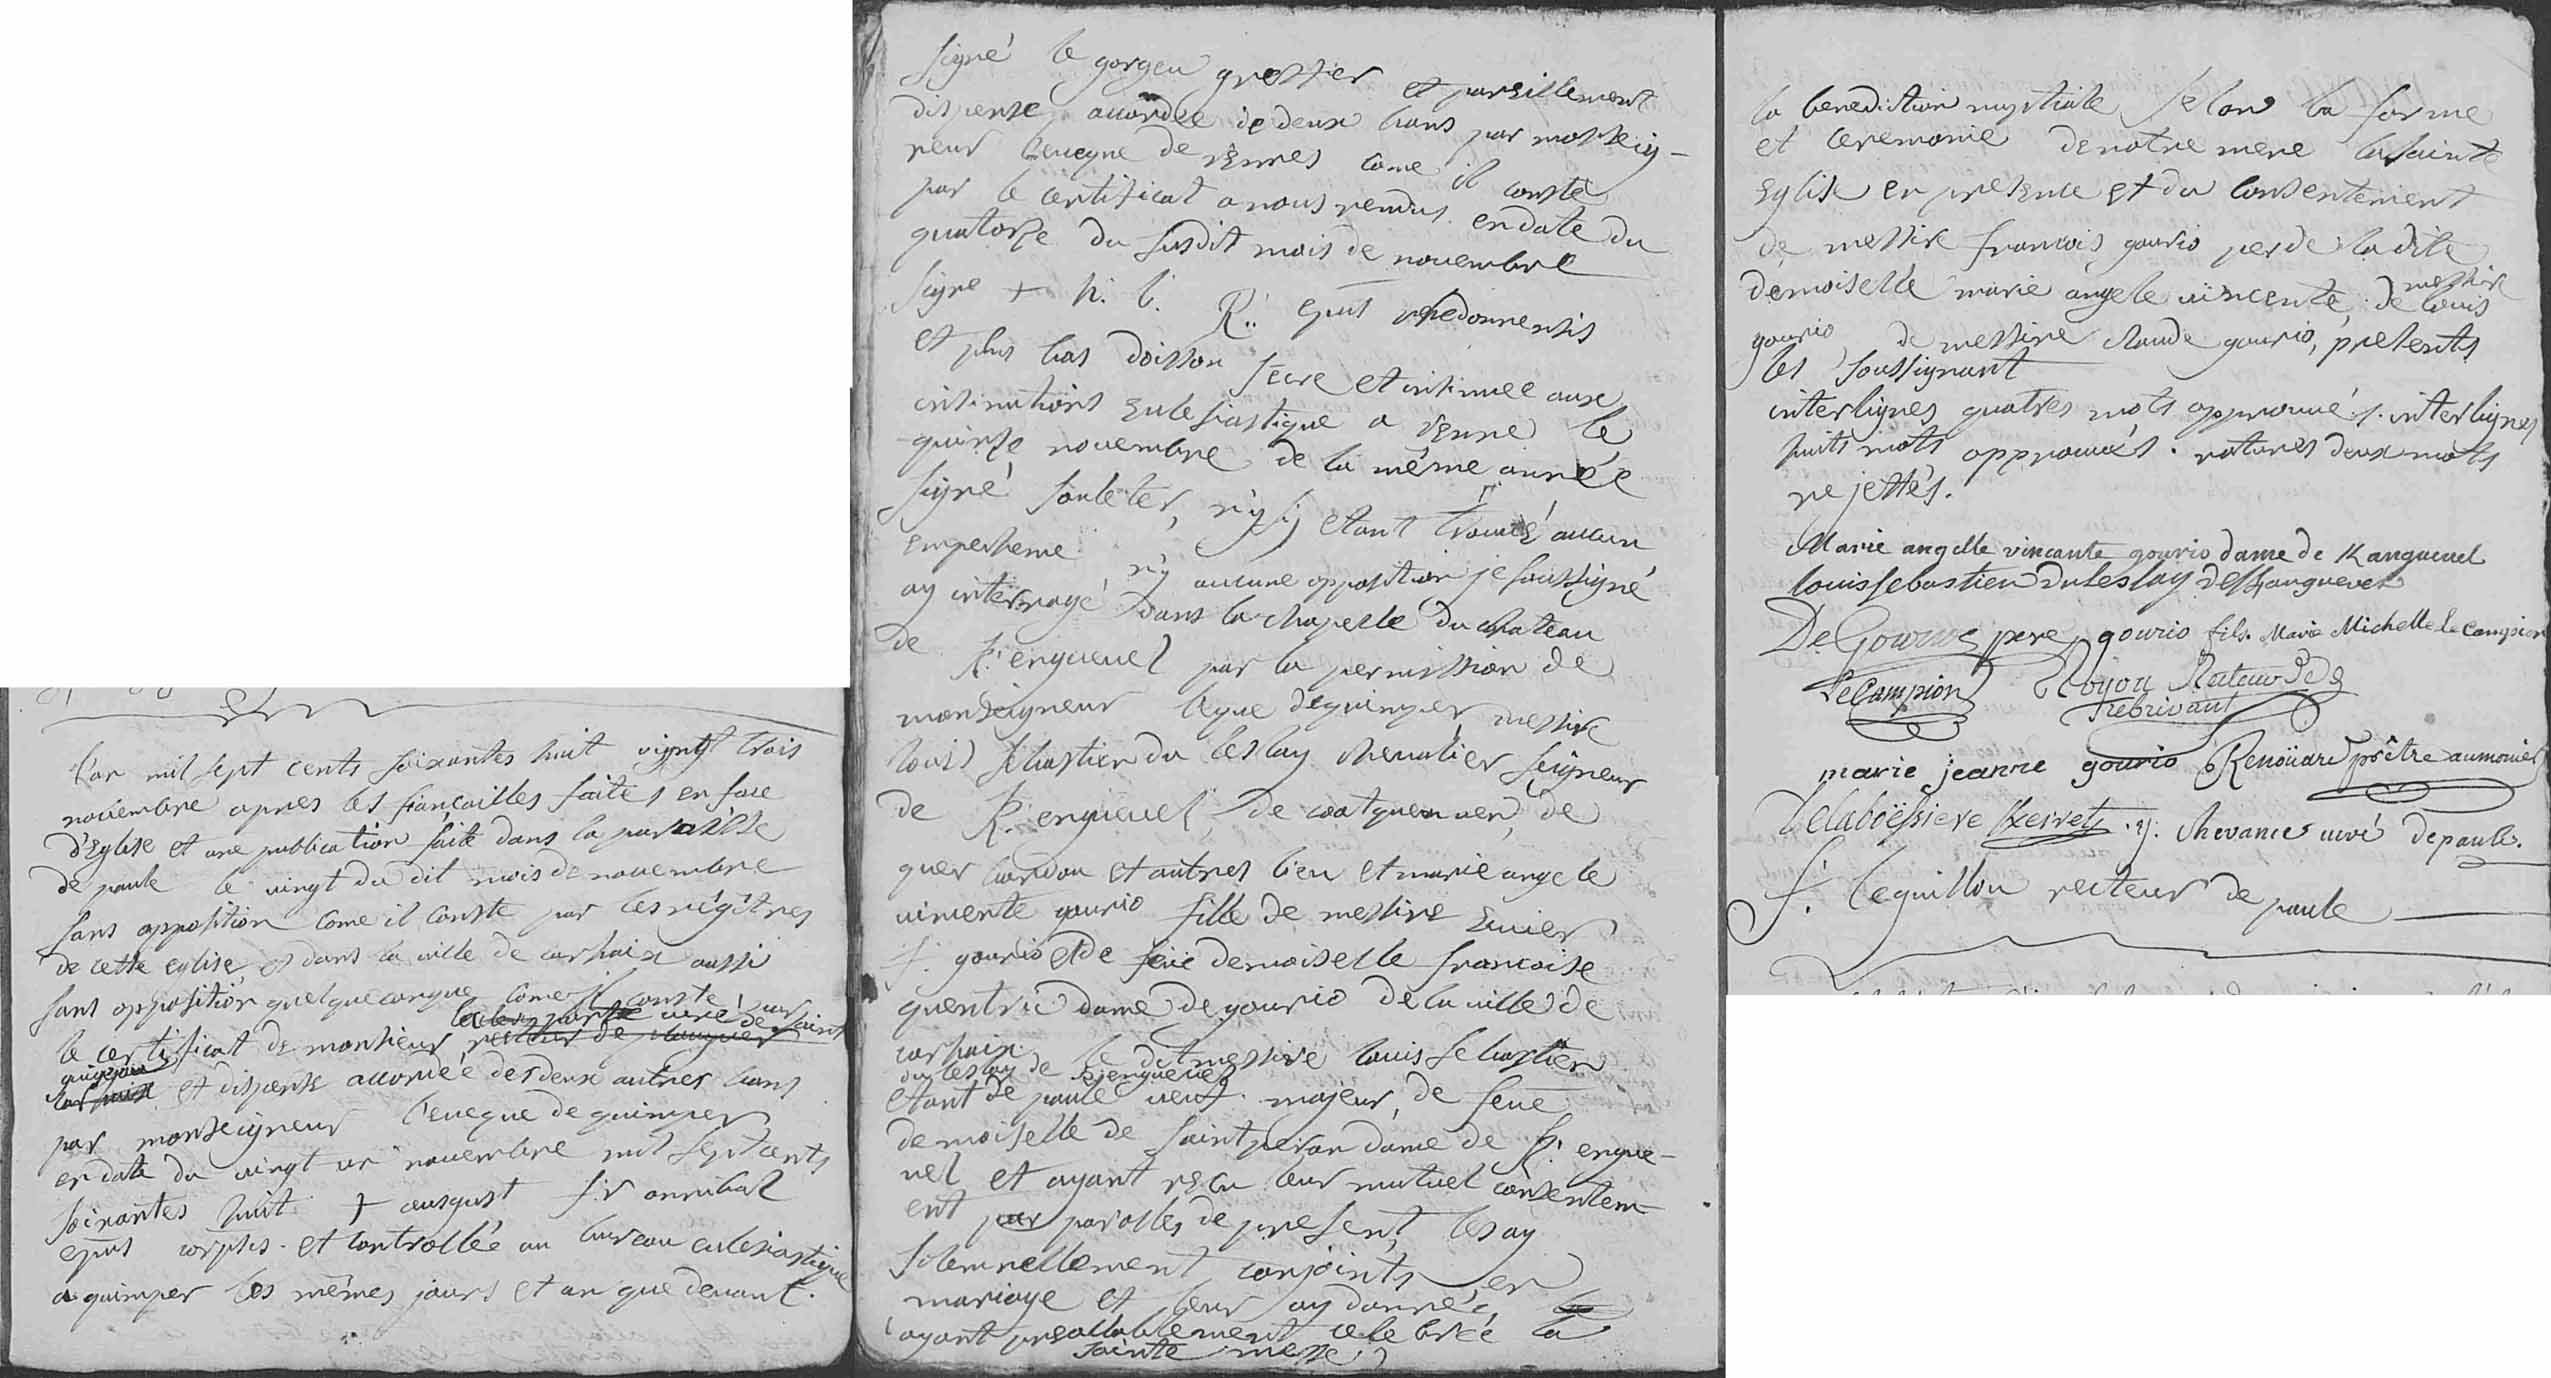 l'an mil sept cents soixantes huit vignt trois
novembre apres les fiançailles faites en face
d'Eglise et une publication faite dans la paroisse
de paule le vingt du dit mois de novembre
sans opposition come il conste par les régitres
de cette eglise et dans la ville de carhaix aussi
sans opposition quelqueconque come il conste par
le certificat de monsieur recteur de plouguer
carhaix et dispense accordée des deux autres bans
par monseigneur l'eveque de quimper
en date du vingt un novembre mil sept cents
soixantes huit + august f: annibal
epus corpts. et controllée au bureau eclesiastique
a quimper les mêmes jours et an que devant.
signé le gorgeu greffier et pareillement
dispense accordée de deux bans par monseig-
neur l'eveque de rennes come il conste
par le certificat a nous rendus en date du
quatorze du susdit mois de novembre
signe + h. l. R.. epus rhedonnensis
et plus bas doisson secre et insinuée aux
insinuations eclesiastique a renne le
quinze novembre de la même année
signé , n'y si etant trouvé aucun
empecheme n'y aucune opposition je soussigné
ay interrogé dans la chapelle du chateau
de K.'enguevel par la permission de
monseigneur leque de quimper messire
louis sebastien du leslay chevalier seigneur
de K.'enguevel, de coatquenven, de
et autres lieu et marie angele
vincente gourio fille de messire
f. gourio et de feue demoiselle francoise
quentric dame de gourio de la ville de
carhaix le dit messire louis sebastien
du leslay de K'enguevel
etant de paule veuf majeur, de feue
demoiselle de saint peran dame de K.'engue-
vel et ayant reçu leur mutuel consentem-
ent par parolles de present, les ay
solemnellement conjoints en
mariage et leur ay donnée,
ayant preallablement celebrée la
sainte messe
la benediction nuptiale selon la forme
et ceremonie de notre mere la sainte
Eglise en presence et du consentement
de messire francois gourio per de la dite
demoiselle marie angele vincente, de messire louis
gourio de messire claude gourio, presents
les soussignant
interlignes quatres mots approuvés. interlignes
huits mots approuvés. ratures deux mots
rejettés.
Marie angelle vincante gourio dame de Kanguevel
louis sebastien du leslay de Kanguevel
De Gourio pere gourio fils. Marie Michelle le Campion
Le Campion Royou Recteur de
Trebrivant
marie jeanne gourio Renoüard prêtre aumonier
Delaboëssiere Kerret. y. chevance curé de paule.
f. leguillou recteur de paule